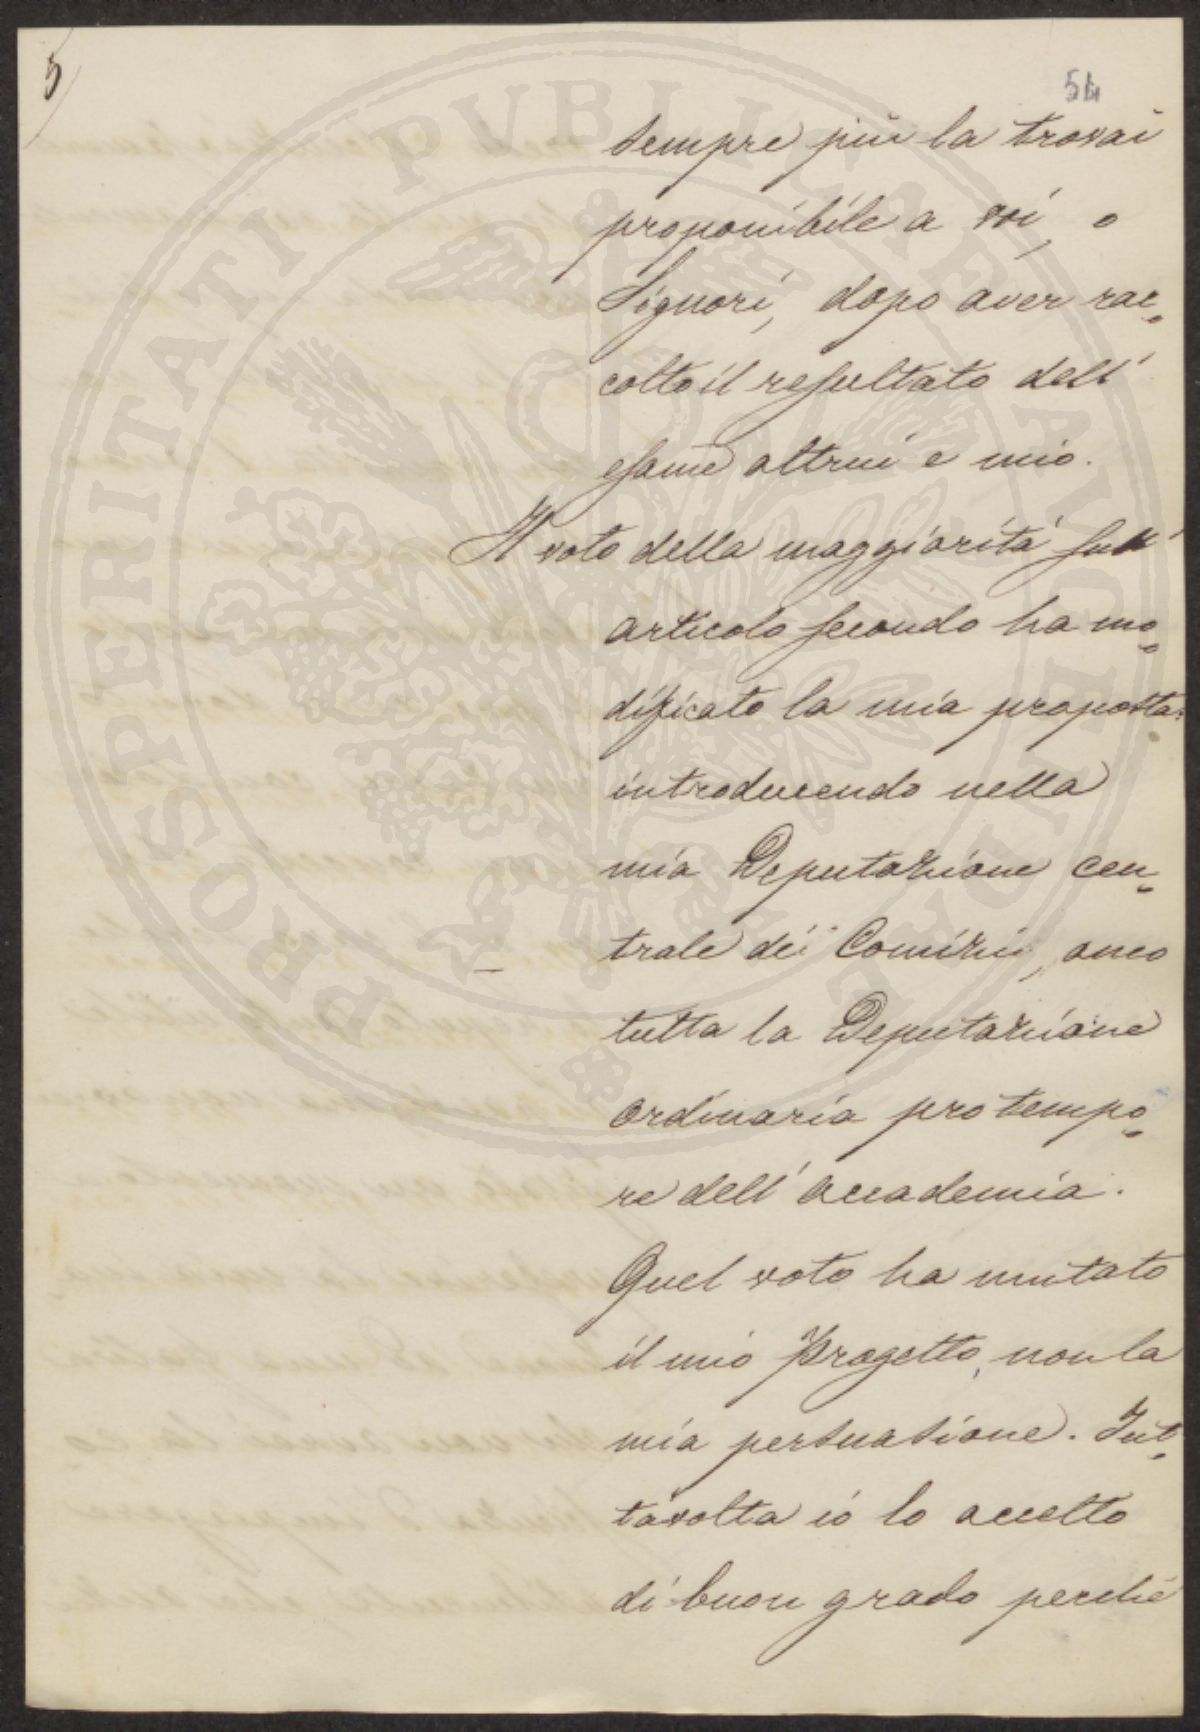 5
54
sempre più la trovai
proponibile a voi, o
Signori, dopo aver rac-
colto il resultato dell'
esame altrui e mio.
Il voto della maggiorità sull'
articolo secondo ha mo-
dificato la mia proposta:
introducendo nella
mia Deputazione cen-
trale dei Comizii, anco
tutta la Deputazione
ordinaria pro tempo-
re dell'Accademia.
Quel voto ha mutato
il mio Progetto, non la
mia persuasione. Tut-
tavolta io lo accetto
di buon grado perché
PROSPERITATI PUBLICAE AUGENDAE